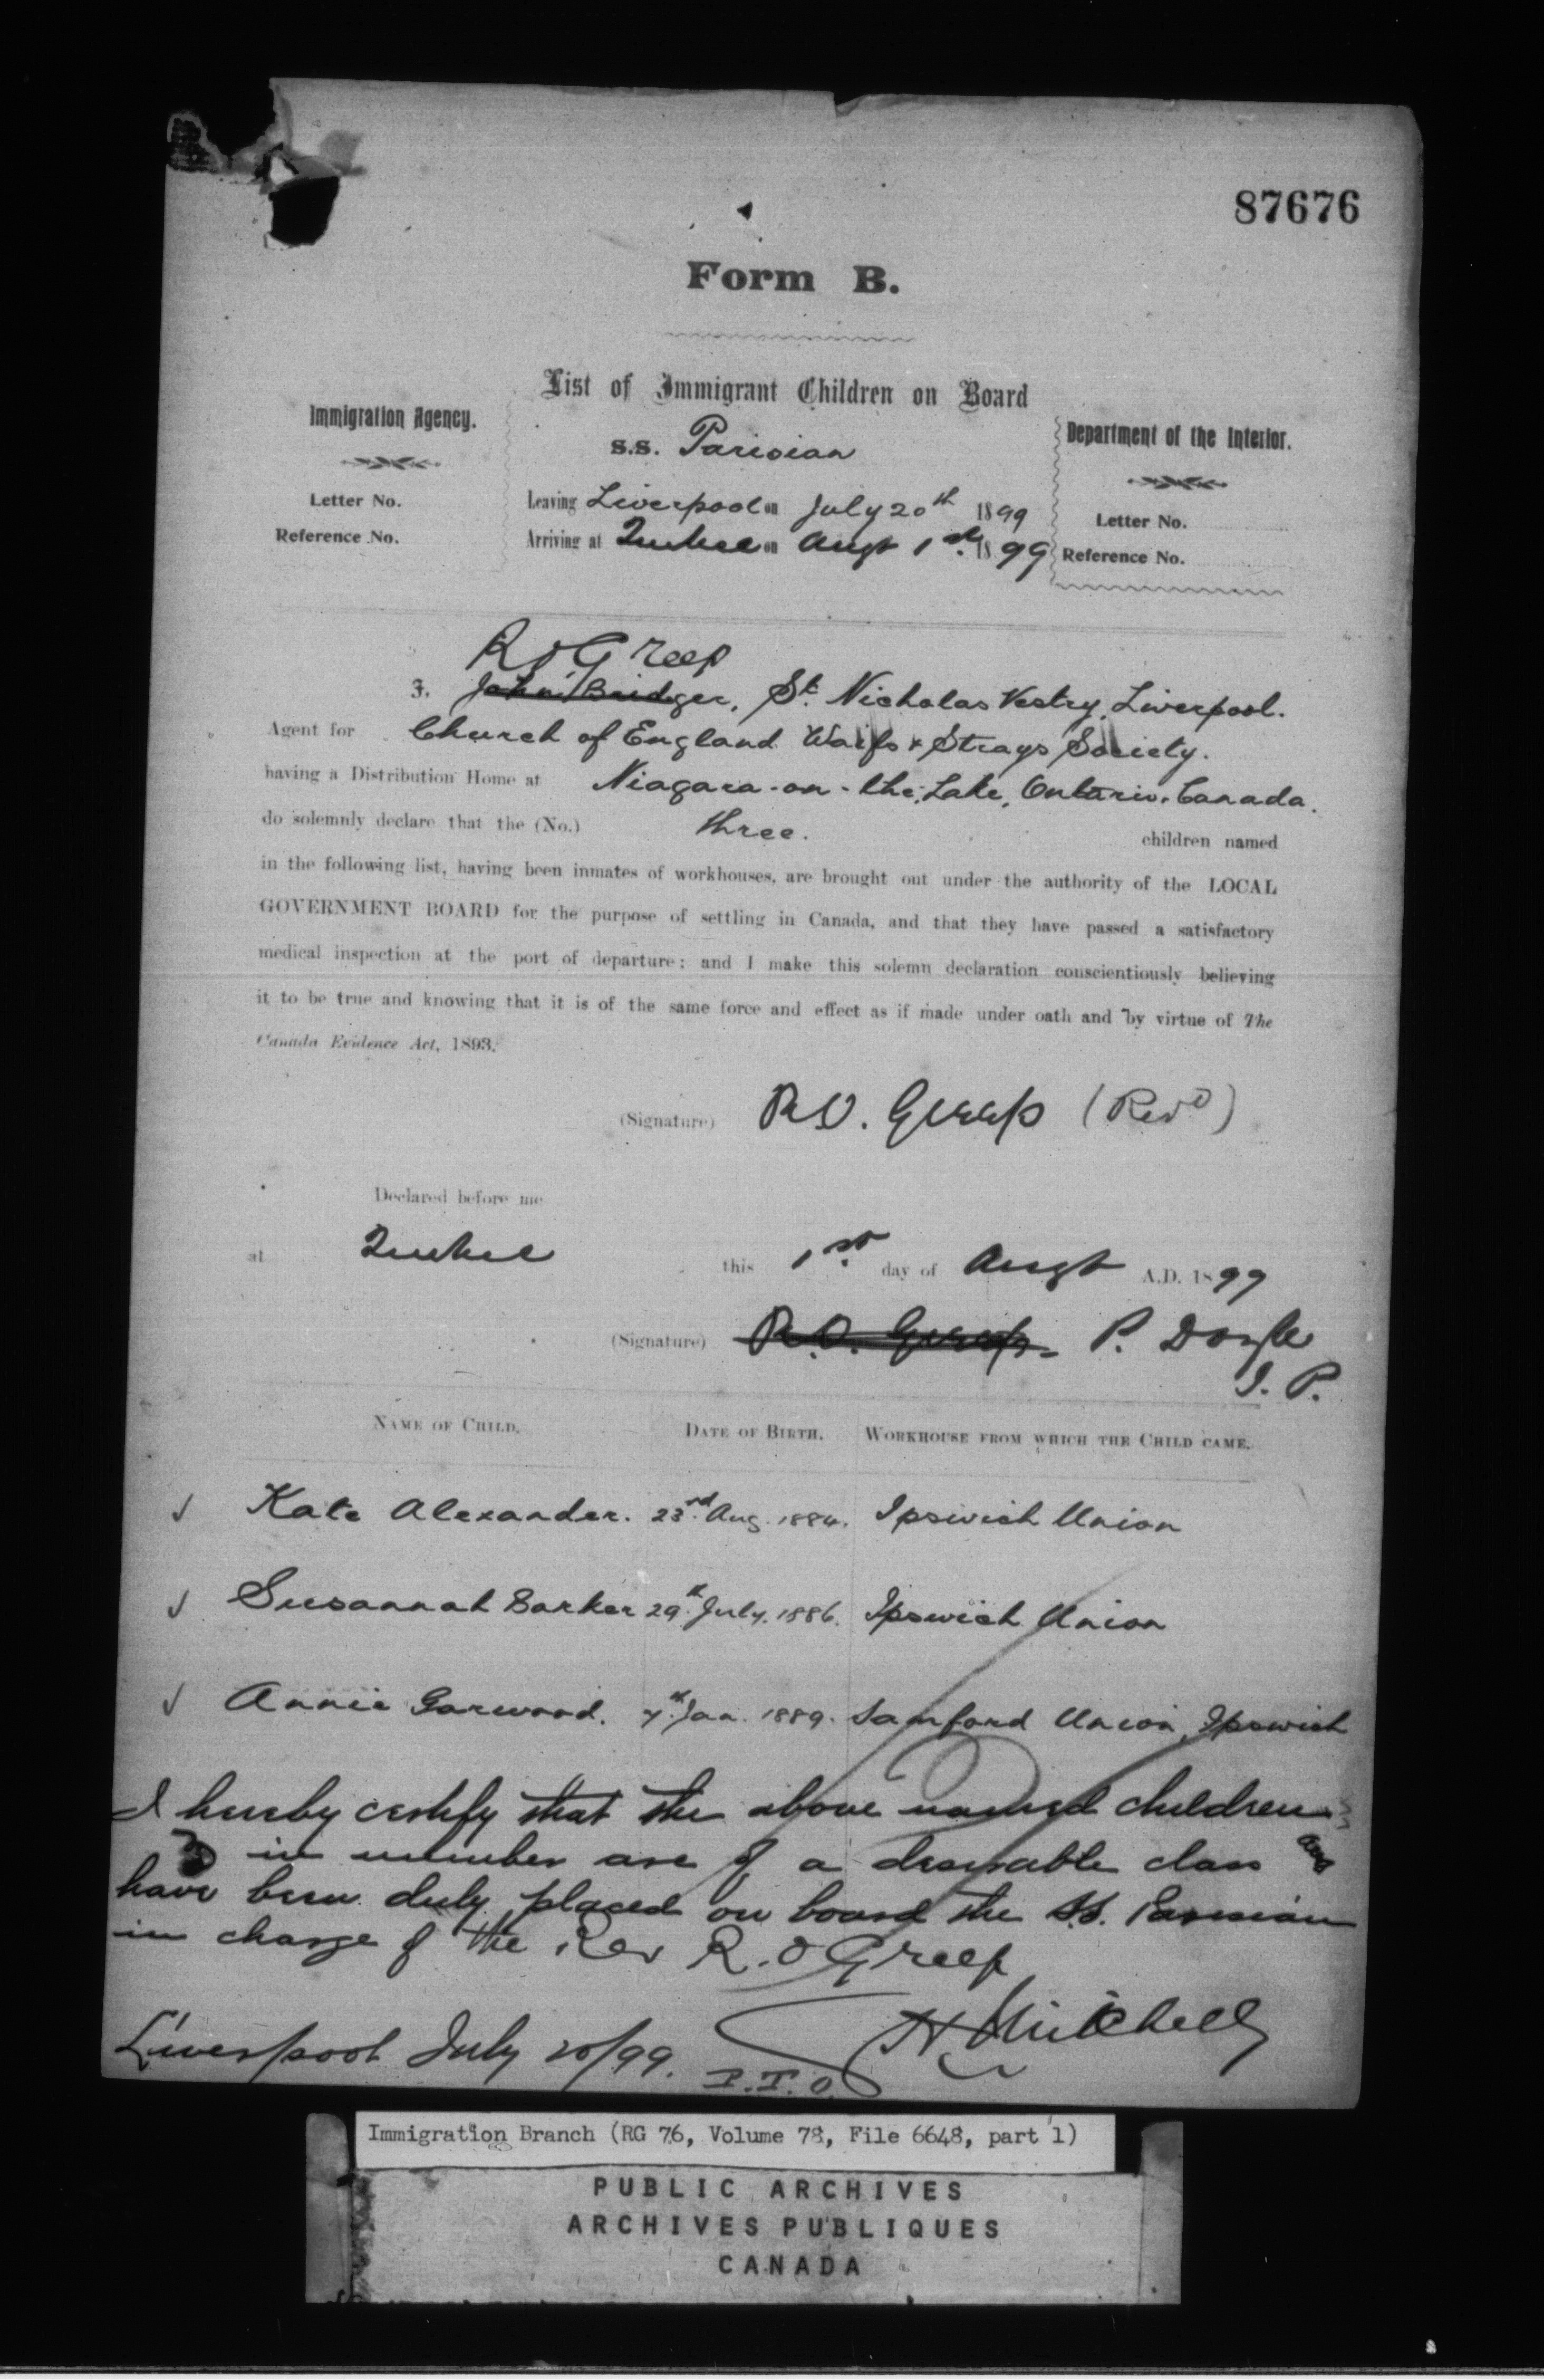 87676
Form B.
List of Immigrant Children on Board
s.s. Parisian
Immigration Agency.
Letter No.
Reference No.
Leaving Liverpool on July 20th 1899
Arriving at Quebec on Augt 1st 1899
Department of the Interior.
Letter No.
Reference No.
R O Greep
I, John Bridger, St. Nicholas Vestry, Liverpool.
Agent for Church of England Waifs & Strays Society.
having a Distribution Home at Niagara-on-the-Lake, Ontario, Canada.
do solemnly declare that the (No.) three. children named
in the following list, having been inmates of workhouses, are brought out under the authority of the LOCAL
GOVERNMENT BOARD for the purpose of settling in Canada, and that they have passed a satisfactory
medical inspection at the port of departure; and I make this solemn declaration conscientiously believing
it to be true and knowing that it is of the same force and effect as if made under oath and by virtue of The
Canada Evidence Act, 1893.
(Signature) R.O. Greep (Revd)
Declared before me
at Quebec this 1st day of Augt A.D. 1899
(Signature) R.O. Greep. P. Doyle
J. P.
NAME OF CHILD. DATE OF BIRTH. WORKHOUSE FROM WHICH THE CHILD CAME.
Kate Alexander. 23rd Aug. 1884. Ipswich Union
Susannah Barker 29th July. 1886. Ipswich Union
Annie Garwood. 7th Jan. 1889. Samford Union, Ipswich
I hereby certify that the above named children
3 in number are of a desirable class and
have been duly placed on board the SS. Parisian
in charge of the Rev R. O Greep
H Mitchell
Liverpool July 20/99.
P.T.O.
Immigration Branch (RG 76, Volume 78, File 6648, part 1)
PUBLIC ARCHIVES
ARCHIVES PUBLIQUES
CANADA